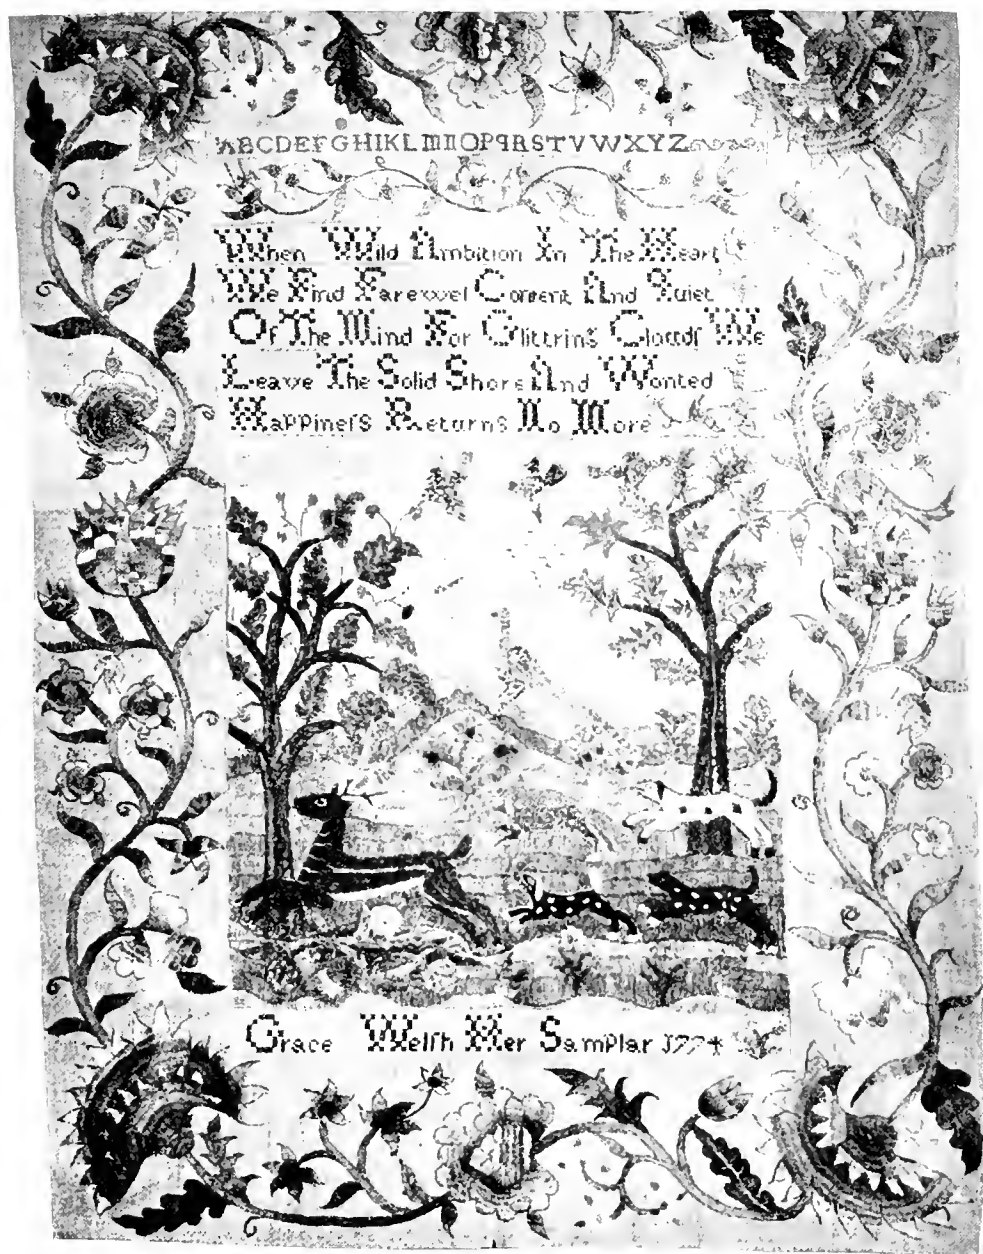 ABCDEFGHIKLMNOPqRSTVWXYZ
When Wild Ambition In The Heart
We Find Farewel Content And Quiet
Of The Mind For Glittring Cloudſ We
Leave The Solid Shore And Wonted
Happineſs Returns No More
Grace Welſh Her Samplar 1774